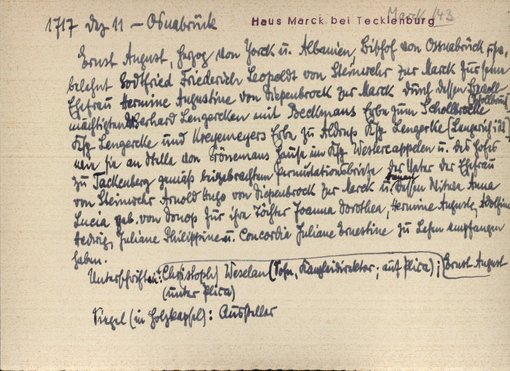 1717 Dez 11 – Osnabrück
Haus Marck bei Tecklenburg
Marck 143
Ernst August, Herzog von Yorck u. Albanien, Bischof von Osnabrück usw.
belehnt Godtfried Friederich Leopoldt von Steinwehr zur Marck für seine
Ehefrau Hermine Augustine von Diepenbrock zur Marck durch dessen
mächtigten Eberhard Lengercken mit Beckmans Erbe zum Schollbrocke
Ksp. Lengercke und Kreyemeyers Erbe zu Aldrup Ksp. Lengerke
wie sie an Stelle von Grönemans Hause im Ksp. Westercappelen u. des Hofes
zu Tackenberg gemäß beigebrachtem Permutationsbriefe der Vater der Ehefrau
von Steinwehr Arnold Hugo von Diepenbrock zur Marck u. danach dessen Witwe Anna
Lucia geb. von Donop für ihre Töchter Joanna Dorothea, Hermine Auguste,
Hedwig, Juliane Philippine u. Concordia Juliane Ernestine zu Lehen empfangen
haben.
Unterschriften: Christoph Weselau (Kanzleidirektor, auf Plica); Ernst August
(unter Plica)
Siegel (in Holzkapsel): Aussteller